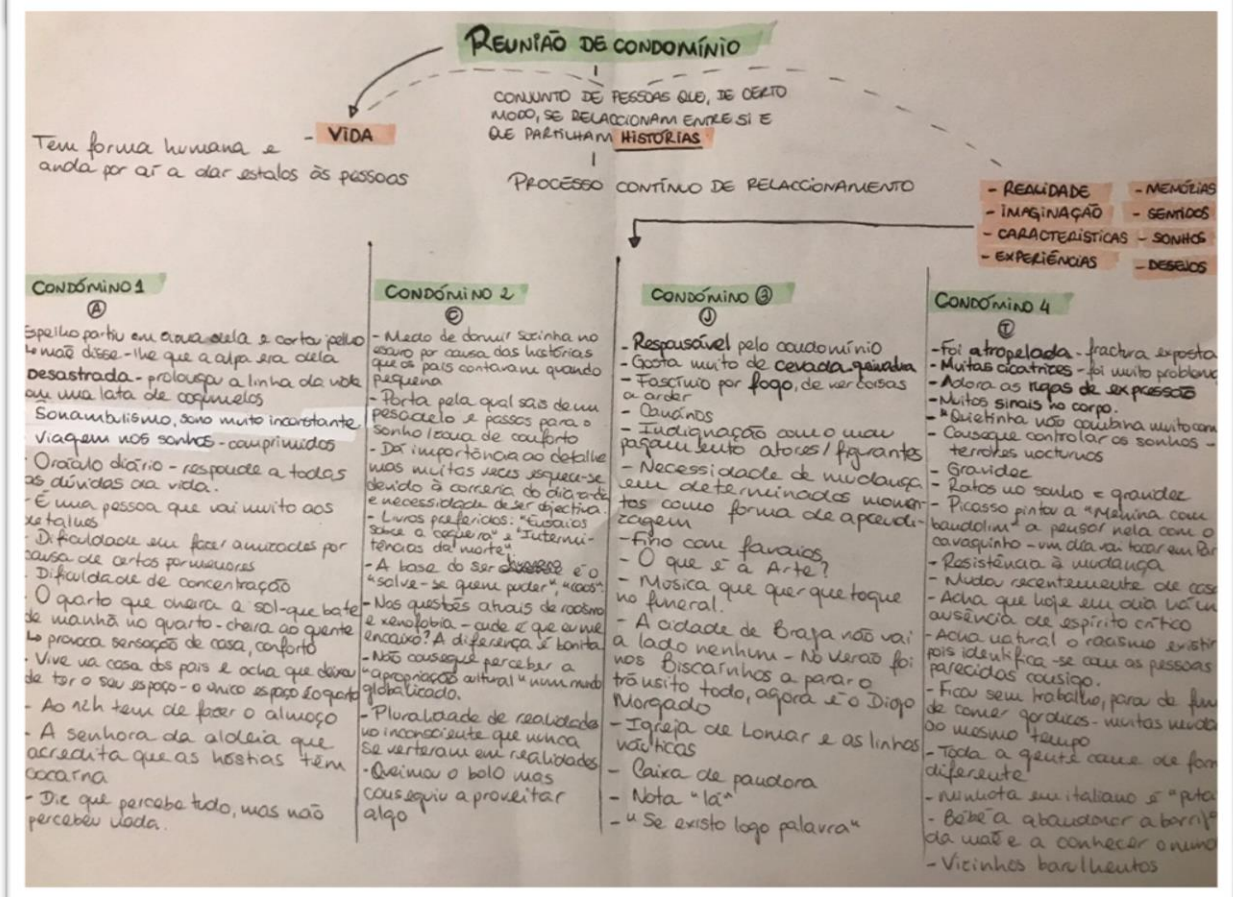 REUNIÃO DE CONDOMÍNIO
CONJUNTO DE PESSOAS QUE, DE CERTO
MODO, SE RELACCIONAM ENTRE SI E
QUE PARTILHAM HISTÓRIAS
PROCESSO CONTÍNUO DE RELACCIONAMENTO
- VIDA
Tem forma humana e
anda por aí a dar estalos às pessoas
- REALIDADE
- IMAGINAÇÃO
- CARACTERÍSTICAS
- EXPERIÊNCIAS
- MEMÓRIAS
- SENTIDOS
- SONHOS
- DESEJOS
CONDÓMINO 1
A
Espelho partiu em cima dela e cortou joelho
↳ mãe disse-lhe que a culpa era dela
Desastrada - prolongou a linha da vida
com uma lata de cogumelos
Sonambulismo, sono muito inconstante
Viagem nos sonhos - comprimidos
- Oráculo diário - responde a todas
as dúvidas da vida.
- É uma pessoa que vai muito aos
detalhes
- Dificuldade em fazer amizades por
causa de certos pormenores
- Dificuldade de concentração
- O quarto que cheira a sol - que bate
de manhã no quarto - cheira ao quente
↳ provoca sensação de casa, conforto
- Vive na casa dos pais e acha que devia
de ter o seu espaço - o único espaço é o quarto
- Ao 12h tem de fazer o almoço
- A senhora da aldeia que
acredita que as hóstias têm
cocaína
- Diz que percebe tudo, mas não
percebeu nada.
CONDÓMINO 2
- Medo de dormir sozinha no
escuro por causa das histórias
que os pais contavam quando
pequena
- Porta pela qual sais de um
pesadelo e passas para o
sonho/zona de conforto
- Dá importância ao detalhe
mas muitas vezes esquece-se
devido à correria do dia-a-dia
e necessidade de ser objectiva.
- Livros preferidos: "Ensaios
sobre a cegueira" e "Intermi-
tências da morte"
- A base do ser é o
"salve-se quem puder", "caos".
- Nas questões atuais de racismo
e xenofobia - onde é que eu me
encaixo? A diferença é bonita
- Não consegue perceber a
"apropriação cultural" num mundo
globalizado.
- Pluralidade de realidades
no inconsciente que nunca
se verteram em realidades
- Queimou o bolo mas
conseguiu aproveitar
algo
CONDÓMINO 3
J
- Responsável pelo condomínio
- Gosta muito de cevada
- Fascínio por fogo, de ver coisas
a arder
- Canários
- Indignação com o mau
pagamento atores/figurantes
- Necessidade de mudança
em determinados momen-
tos como forma de aprendi-
zagem
- Fino com favaios
- O que é a Arte?
- Música que quer que toque
no funeral.
- A cidade de Braga não vai
a lado nenhum - No Verão foi
nos Biscainhos a parar o
trânsito todo, agora é o Diogo
Morgado
- Igreja de Lomar e as linhas
náuticas
- Caixa de pandora
- Nota "lá"
- "Se existo logo palavra"
CONDÓMINO 4
- Foi atropelada - fractura exposta
- Muitas cicatrizes - foi muito
- Adora as rugas de expressão
- Muitos sinais no corpo.
- "Quietinha não combina muito com
- Consegue controlar os sonhos -
terrores nocturnos
- Gravidez
- Ratos no sonho = gravidez
- Picasso pintou a "Menina com
bandolim" a pensar nela com o
cavaquinho - um dia vai tocar em
- Resistência à mudança
- Muda recentemente de casa
- Acha que hoje em dia há um
ausência de espírito crítico
- Acha natural o racismo existir
pois identifica-se com as pessoas
parecidas consigo.
- Ficou sem trabalho, parou de
de comer gordices - muitas
ao mesmo tempo
- Toda a gente come de
diferente
- Minhota em italiano é "puta
- Bébé a abandonar a
da mãe e a conhecer o
- Vizinhos barulhentos